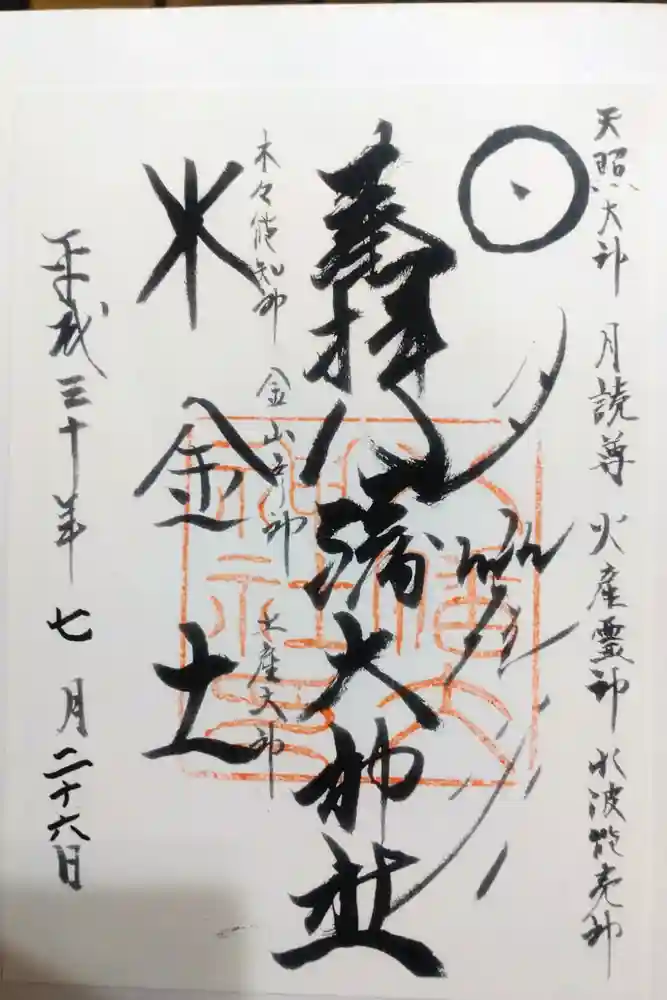 天照大神 月読尊 火産霊神 水波能売神
奉拝 八幡大神社
木々能知神 金山彦神 土産大神
木 金 土
平成三十年七月二十六日